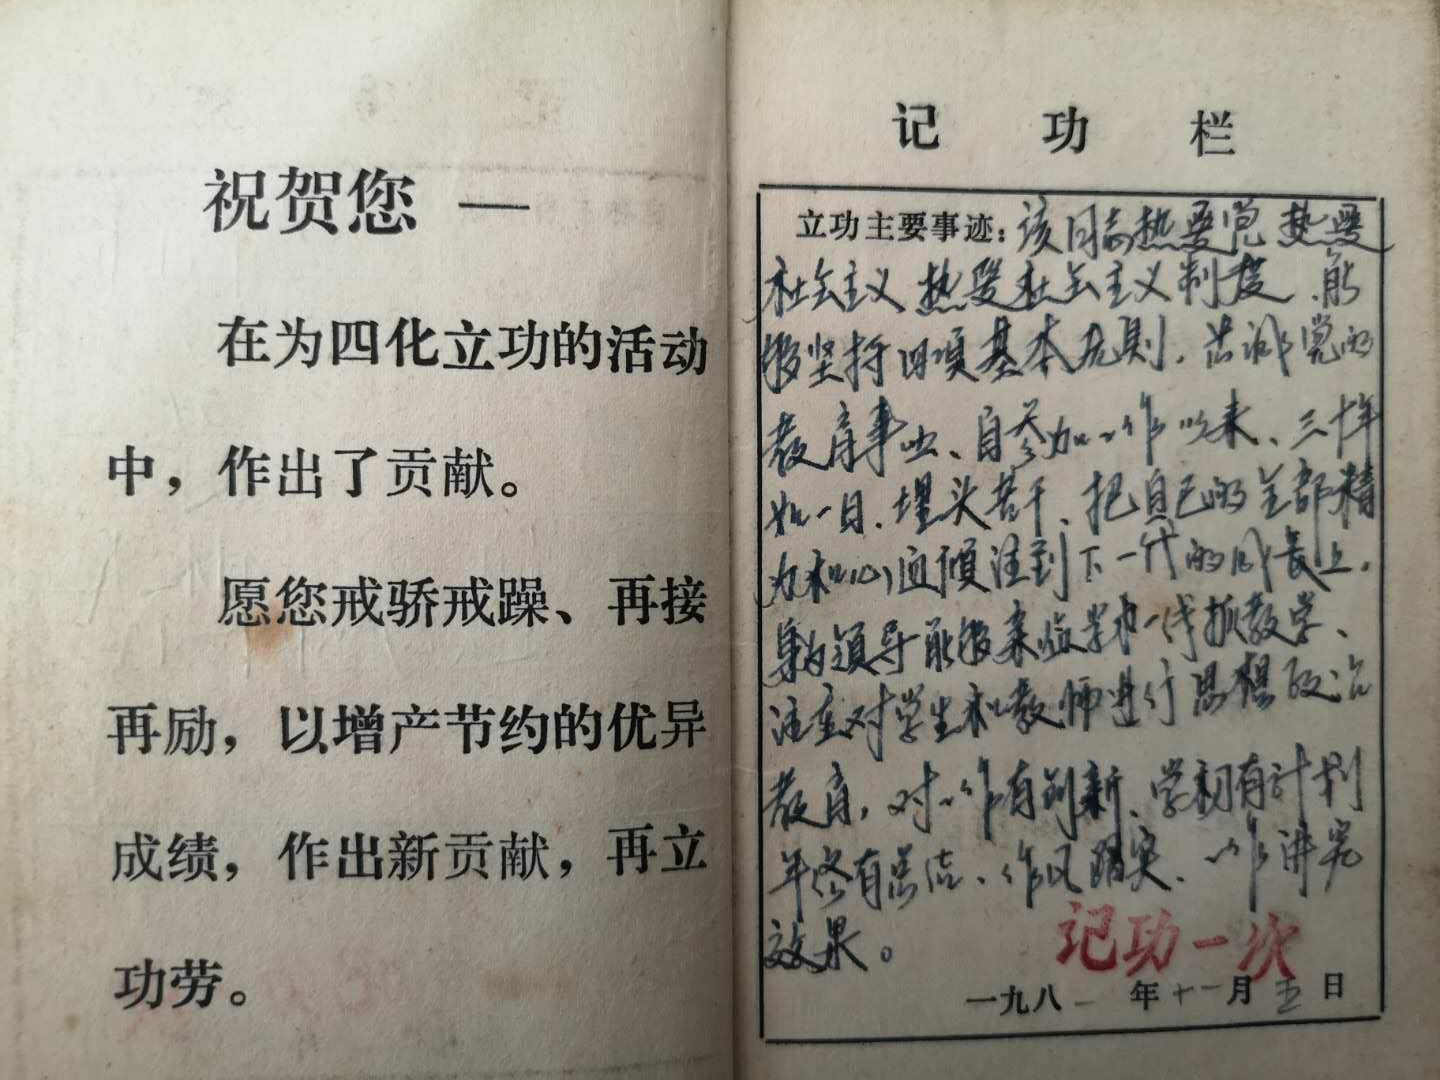 祝贺您—
在为四化立功的活动
中，作出了贡献。
愿您戒骄戒躁、再接
再励，以增产节约的优异
成绩，作出新贡献，再立
功劳。
记功栏
立功主要事迹：该同志热爱党热爱
社会主义热爱社会主义制度、能
够坚持四项基本原则。忠诚党的
教育事业、自参加工作以来、三十年
如一日、埋头苦干、把自己的全部精
力和心血倾注到下一代的成长上。
身为领导能够亲临学校一线抓教学、
注重对学生和教师进行思想政治
教育，对工作有创新、学初有计划
年终有总结、作风踏实、工作讲究
效果。
记功一次
一九八一年十一月五日